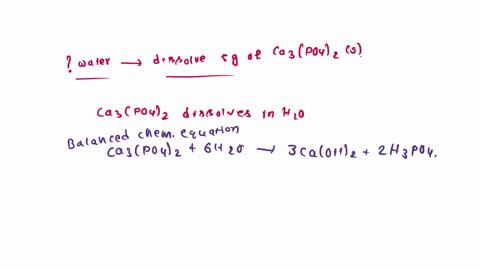 ? water → dissolve 5g of Ca3(PO4)2 (s)
Ca3(PO4)2 dissolves in H2O
Balanced chem. equation
Ca3(PO4)2 + 6H2O → 3Ca(OH)2 + 2H3PO4.